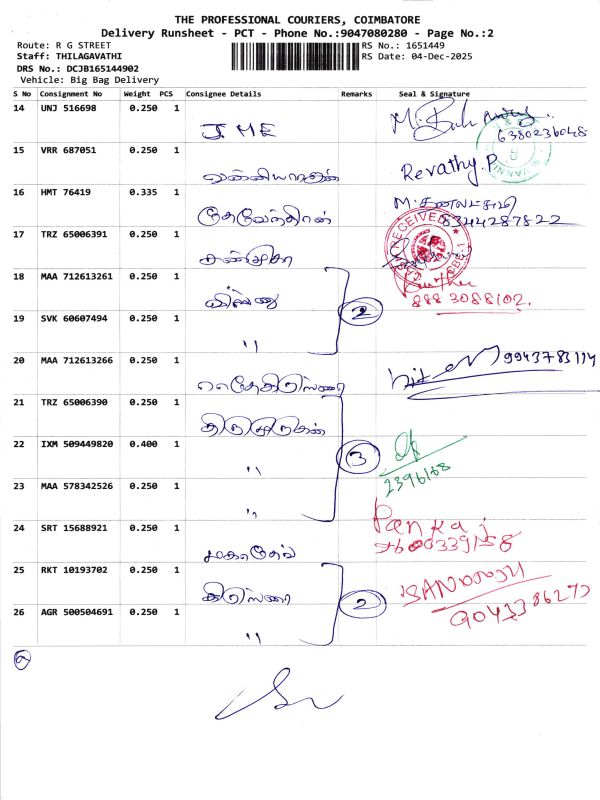 THE PROFESSIONAL COURIERS, COIMBATORE
Delivery Runsheet - PCT - Phone No.:9047080280 - Page No.:2
Route: R G STREET
RS No.: 1651449
Staff: THILAGAVATHI
RS Date: 04-Dec-2025
DRS No.: DCJB165144902
Vehicle: Big Bag Delivery
S No Consignment No Weight PCS Consignee Details Remarks Seal & Signature
14 UNJ 516698 0.250 1 J ME
6380236048
15 VRR 687051 0.250 1 Revathy.P.
16 HMT 76419 0.335 1
8344287822
17 TRZ 65006391 0.250 1 சண்முகா
RECEIVED
18 MAA 712613261 0.250 1 விஷ்ணு
8883088102.
2
19 SVK 60607494 0.250 1 "
20 MAA 712613266 0.250 1 9943783114
21 TRZ 65006390 0.250 1 திருமுருகன்
22 IXM 509449820 0.400 1 "
3
2396168
23 MAA 578342526 0.250 1 "
24 SRT 15688921 0.250 1 Pankaj
25 RKT 10193702 0.250 1
2
26 AGR 500504691 0.250 1 "